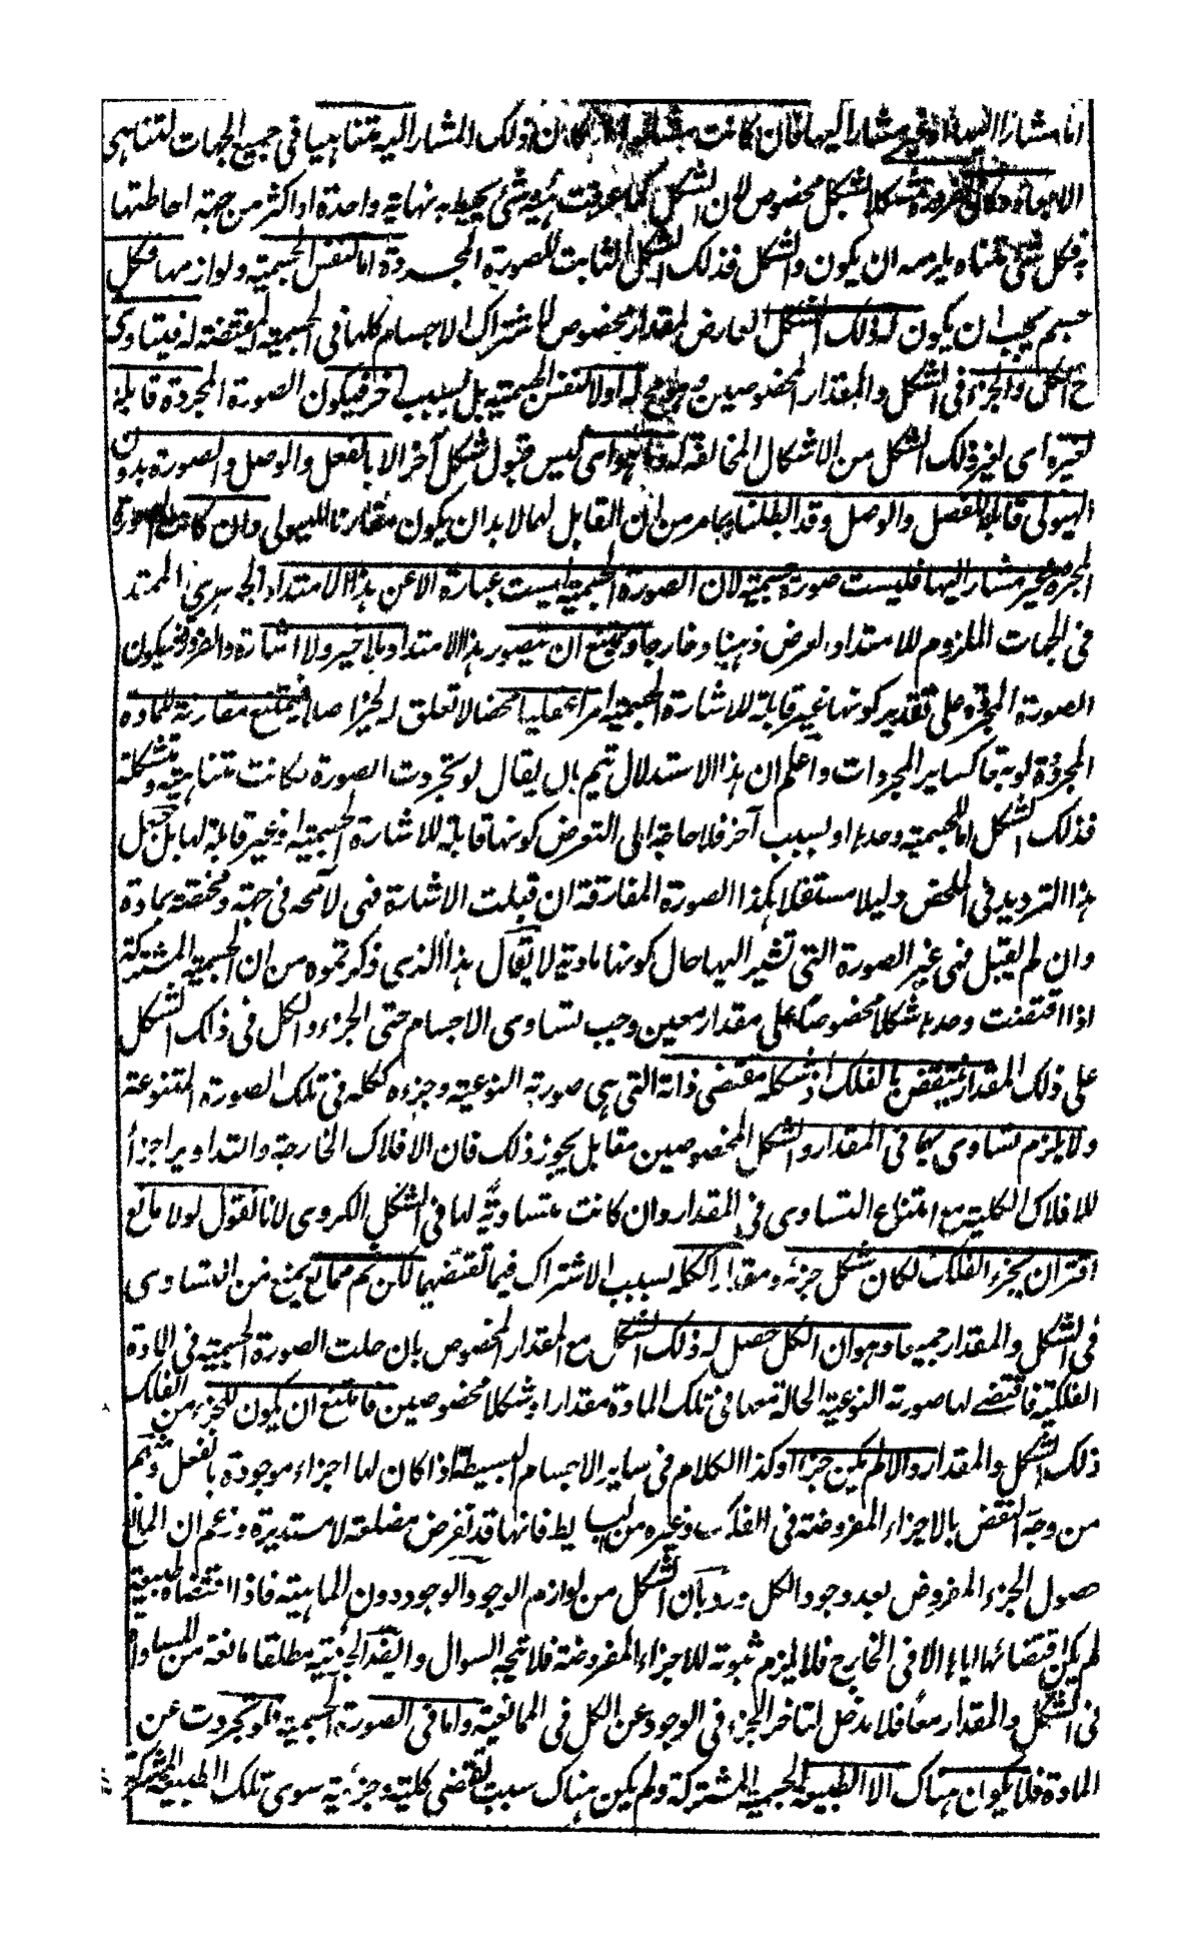 اما مشارا اليها او غير مشار اليها فان كانت مشارا اليها كان ذلك المشار اليه متناهيا فى جميع الجهات لتناهى
الابعاد فكان معروضة لشكل مخصوص لان الشكل كما عرفت هيئة شئ يحيط به نهاية واحدة او اكثر من جهة احاطتها
به فكل شئ متناه يلزمه ان يكون ذا شكل فذلك الشكل الثابت للصورة المجردة اما لنفس الجسمية ولوازمها فكل
جسم يجب ان يكون له ذلك الشكل العارض لمقدار مخصوص لاشتراك الاجسام كلها فى الجسمية المقتضة له فيتساوى
ح الكل والجزء فى الشكل والمقدار المخصوصين له او لا لنفس الجسمية بل لسبب آخر فيكون الصورة المجردة قابلة
لغيره اى لغير ذلك الشكل من الاشكال المخالفة له اى ليس قبول شكل آخر الا بالفصل والوصل والصورة بدون
الهيولى قابلة للفصل والوصل وقد ابطلناه بما مر من ان القابل لهما لا بد ان يكون مقارنا للهيولى وان كانت الصورة
المجردة غير مشار اليها فليست صورة جسمية لان الصورة الجسمية ليست عبارة الا عن هذا الامتداد الجوهرى الممتد
فى الجهات الملزوم للامتداد العرضى ذهنا وخارجا ويمتنع ان يتصور هذا الامتداد بلا حيز ولا اشارة والمفروض فيكون
الصورة المجردة على تقدير كونها غير قابلة للاشارة الجسمية امرا عقليا محضا لا تعلق له بحيز اصلا فيمتنع مقارنة للمادة
المجردة لوبقا كساير المجردات واعلم ان هذا الاستدلال يتم بان يقال لو تجردت الصورة لكانت متناهية ومتشكلة
فذلك الشكل اما للجسمية وحدها او لسبب آخر فلا حاجة الى التعرض لكونها قابلة للاشارة الجسمية او غير قابلة لها بل جعل
هذا الترديد فى الملخص دليلا مستقلا هكذا الصورة المفارقة ان قبلت الاشارة فهى لا محة فى جهة ومختصة بمادة
وان لم يقبل فهى غير الصورة التى تشير اليها حال كونها مادية لا يقال هذا الذى ذكرتموه من ان الجسمية المشتركة
اذا اقتضت وحدها شكلا مخصوصا على مقدار معين وجب تساوى الاجسام حتى الجزء والكل فى ذلك الشكل
على ذلك المقدار ينتقض بالفلك اذ شكله مقتضى ذاته التى هى صورته النوعية وجزءه ككله فى تلك الصورة المتنوعة
ولا يلزم تساوى هما فى المقدار والشكل المخصوصين مقابل يجوز ذلك فان الافلاك الخارجة والتداوير اجزأ
للافلاك الكلية مع امتناع التساوى فى المقدار وان كانت متساوية لها فى الشكل الكروى لانا نقول لولا مانع
اقتران بجزء الفلك لكان شكل جزئه ومقداره ككله بسبب الاشتراك فيما تقتضيهما لكن ثم مانع يمنع من التساوى
فى الشكل والمقدار جميعا وهو ان الكل حصل له ذلك الشكل مع المقدار المخصوص بان حلت الصورة الجسمية فى المادة
الفلكية فاقتضى لها صورته النوعية الحالة معها فى تلك المادة مقدارا وشكلا مخصوصين فامتنع ان يكون للجزء من الفلك
ذلك الشكل والمقدار والا لم يكن جزءا وكذا الكلام فى ساير الاجسام البسيطة اذا كان لها اجزاء موجودة بالفعل ومنهم
من وجه النقض بالاجزاء المفروضة فى الفلك وغيره من البسايط فانها قد تفرض مضلعة لا مستديرة وزعم ان المانع
حصول الجزء المفروض بعد وجود الكل ورد بان الشكل من لوازم الوجود دون الماهية فاذا اقتضاه طبيعة
لم يكن اقتضائها اياه الا فى الخارج فلا يلزم ثبوته للاجزاء المفروضة فلا يتجه السوال وايضا الجزئية مطلقا مانعة من المساواة
فى الشكل والمقدار معا فلا مدخل لتاخر الجزء فى الوجود عن الكل فى المانعية واما فى الصورة الجسمية فلو تجردت عن
المادة فلا يكون هناك الا الطبيعة الجسمية المشتركة ولم يكن هناك سبب تقتضى كلية وجزئية سوى تلك الطبيعة المشتركة